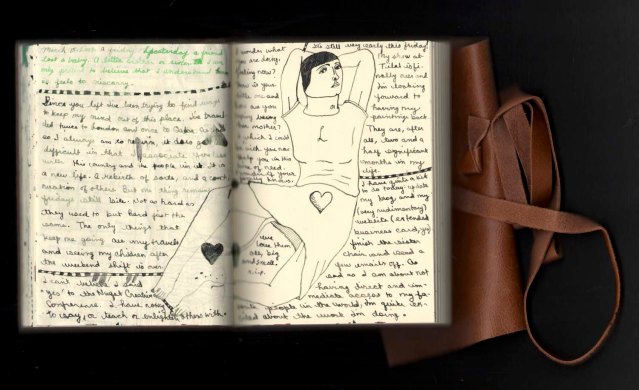 March 15. 2008. A friday. Yesterday a friend
lost a baby. A little brother or sister. I am
only
it feels to miscarry.
Since you left I've been trying to find ways
to keep my mind out of this place. I've travel-
led twice to London and once to
as I always am to return, it does
difficult in that
this country and the people in it. it is
a new life. A rebirth of sorts, and a cont
nuation of others. But one thing remains
fridays still bite. Not as hard as
they used to but hard just the
same. The only things that
keep me going are my travels
and seeing my children after
the weekend shift is over.
I can't believe I said
"yes" to the Nuget Creative
Conference. I have nothing
to say, or teach or enlighten others with.
I wonder what
you are doing.
Eating now?
How is your
little one and
how are you
enjoying being
a mother?
which I could
be with you
help you in this
time of need.
I wonder if you
really know.
we
love them
all, big
and small.
r.i.p.
It's still very early this friday.
My show at
T.Lal is fi-
nally over and
I'm looking
forward to
having my
paintings back.
They are, after
all, two and a
half significant
months in my
life.
I have quite a bit
to do today: update
my blog, and my
(very rudimentary)
website (extended
business card,
finish the sister
chair and send a
few emails off. As
sad as I am about not
having direct and im-
mediate access to my fa-
vorite people in the world, I'm quite ex-
cited about the work I'm doing.